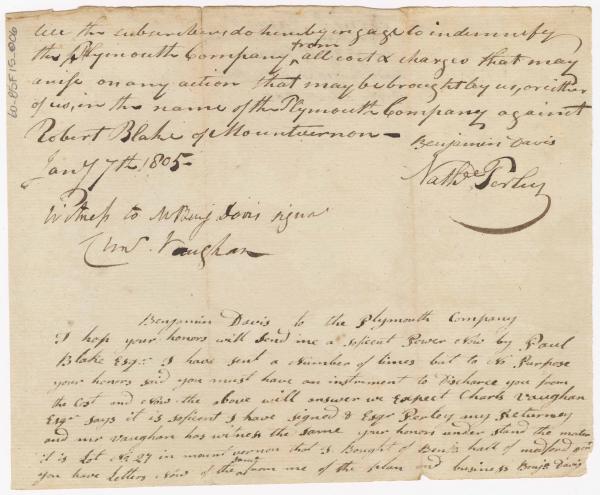 We the subscribers do hereby engage to indemnify
the Plymouth Company from all cost & charges that may
arise on any action that may be brought by us, or either
of us, in the name of the Plymouth Company against
Robert Blake of Mountvernon –
Benjamin Davis
Jany 7th 1805–
Nathl Perley
Witness to Mr Benj Davis signa
Vaughan
Benjamin Davis to the Plymouth Company
I hop your honors will send me a soficent Power Now by Paul
Blake Esqr I have sent a Number of times but to No Purpose
your honors said you must have an instrument to Discharge you from
the Cost and Now the above will answer we Expect Charls Vaughan
Esqr says it is soficient I have signed & Esqr Perley my Returney
and mr Vaughan has witness the same your honors under stand the mater
it is Lot No 27 in mount vernon that I Bought of Benj hall of medford
you have Letters Now of the from me of the plan and business Benj Davis
60-05F15-006